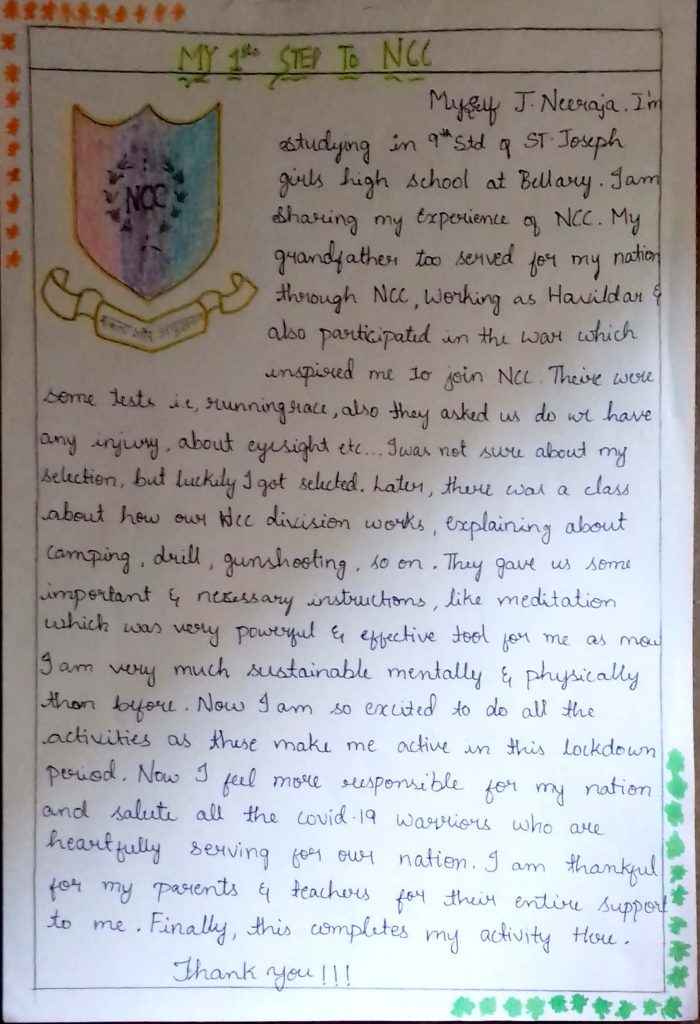 MY 1st STEP TO NCC
Myself J. Neeraja. I'm
studying in 9th Std of ST. Joseph
girls high school at Bellary. I am
sharing my Experience of NCC. My
grandfather too served for my nation
through NCC, Working as Havildar &
also participated in the war which
inspired me to join NCC. Theire were
some tests i.e, runningrace, also they asked us do we have
any injury, about eyesight etc... I was not sure about my
selection, but luckily I got selected. Later, there was a class
about how our Ncc division works, explaining about
camping, drill, gunshooting, so on. They gave us some
important & necessary instructions, like meditation
which was very powerful & effective tool for me as now
I am very much sustainable mentally & physically
than before. Now I am so excited to do all the
activities as these make me active in this lockdown
period. Now I feel more responsible for my nation
and salute all the covid-19 warriors who are
heartfully serving for our nation. I am thankful
for my parents & teachers for their entire support
to me. Finally, this completes my activity Here.
Thank You!!!
NCC
एकता और अनुशासन